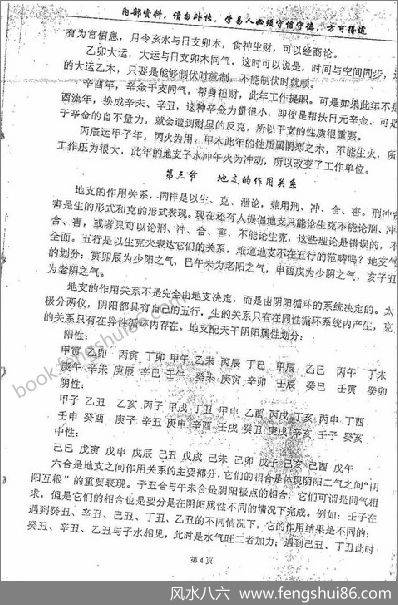 内部资料，请勿外传，学易人必须守信守德，方可得道
有为官偏息，月令亥水与日支卯木，食神生财，可以经商论。
乙卯大运，大运与日支卯木同气，这时可以说是，时间与空间同步，
的大运乙木，只要是能够制伏时就制，不能制伏时就顺。
辛酉年，辛金干支同气，帮身相财，此年工作提职，可是如果此年不是
酉流年，换成辛未、辛丑，这种辛金力量很小，即使是帮扶日元辛金，可
于辛金的自不量力，就会遭到财星的反克，所以干支的性质很重要。
丙辰运甲子年，丙火为用，甲木此年的性质属阴寒之木，不能生火，所
工作压力很大，此年的地支子水冲午火为冲动，所以改变了工作单位。
第三节 地支的作用关系
地支的作用关系，同样是以生、克、泄论，兼用刑、冲、合、害，刑冲合
害是生的形式和克的形式表现。现在还有人强调地支只能论生克不能论刑、冲、
合、害，或者只可以论刑、冲、合、害，不能论生克，这些理论是错误的，不
全面。五行是以生克来表达它们的关系，难道地支不在五行的范畴吗？地支气
的划分，寅卯辰为少阳之气，巳午未为老阳之气，申酉戌为少阴之气，亥子丑
为老阴之气。
地支的作用关系不是完全由地支决定，而是由阴阳循环的系统决定的。太
极分两仪，阴阳都具有自己的五行。生的关系只有在同性循环系统内产生，克
的关系只有在异性循环内存在，地支配天干阴阳属性划分：
阳性：
甲寅 乙卯 丙寅 丁卯 甲午 乙未 丙辰 丁巳 甲辰 乙巳 丙午 丁未
庚午 辛未 庚辰 辛巳 壬午 癸未 庚寅 辛卯 壬辰 癸巳 壬寅 癸卯
阴性：
甲子 乙丑 乙亥 丙子 甲戌 丁丑 甲申 乙酉 丙戌 丁亥 丙申 丁酉
壬申 癸酉 庚子 辛丑 庚申 辛酉 壬戌 癸丑 庚戌 辛亥 壬子 癸亥
中性：
己巳 戊寅 戊申 戊辰 己丑 戊戌 戊子 己未 己卯 戊子 己亥 己酉 戊午
六合是地支之间作用关系的主要部分，它们的相合是体现阴阳二气之间“阴
阳互根”的重要表现。子丑合与午未合是阴阳极点的相合，它们可谓是同气相
求，但是它们的相合也是要分是在阴阳属性不同的情况下完成。例如：壬子在
遇到癸丑、辛丑、己丑、丁丑、乙丑的不同情况下，它的作用结果是不同的：
癸丑、辛丑、乙丑与子水相见，此时是水气旺二者加力；遇到己丑、丁丑此时
第4页
book.feishui86.com
风水八六 - www.fengshui86.com